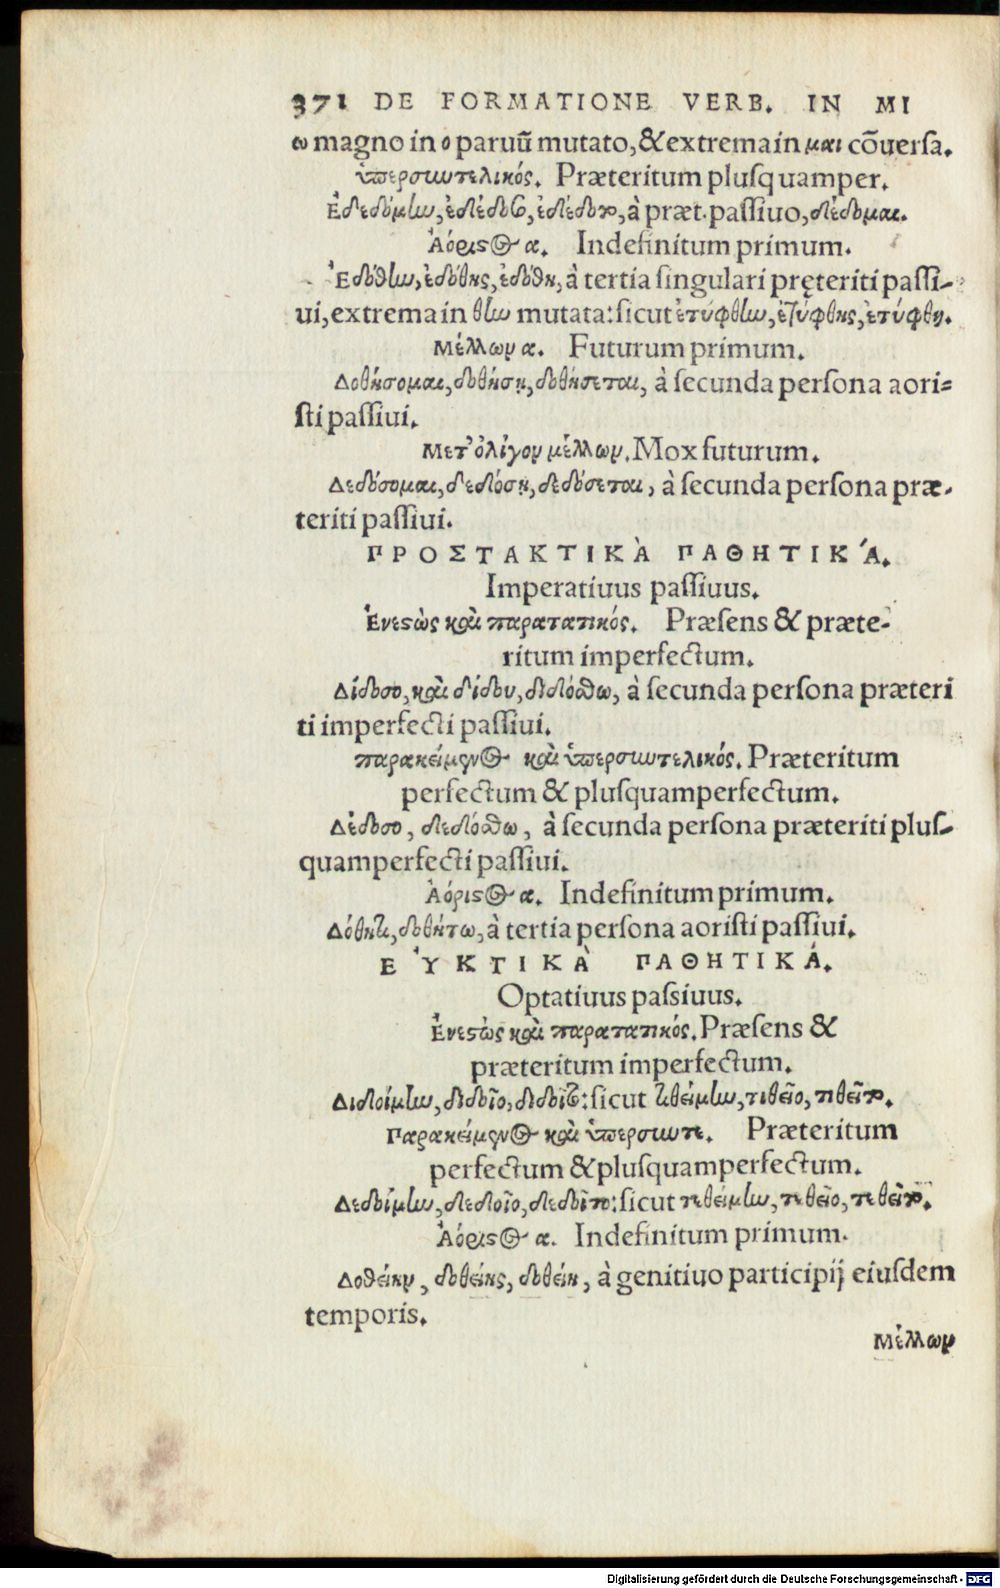 371 DE FORMATIONE VERB. IN MI
ω magno in ο paruū mutato, & extrema in μαι cōuersa.
ὑπερσυντελικός. Præteritum plusquamper.
Ἐδεδόμην, ἐδέδοσο, ἐδέδοτο, à præt. passiuo, δέδομαι.
Ἀόριστος α. Indefinitum primum.
Ἐδόθην, ἐδόθης, ἐδόθη, à tertia singulari pręteriti passi-
ui, extrema in θην mutata: sicut ἐτύφθην, ἐτύφθης, ἐτύφθη.
Μέλλων α. Futurum primum.
Δοθήσομαι, δοθήσῃ, δοθήσεται, à secunda persona aori=
sti passiui.
Μετ' ὀλίγον μέλλων. Mox futurum.
Δεδόσομαι, δεδόσῃ, δεδόσεται, à secunda persona præ-
teriti passiui.
ΠΡΟΣΤΑΚΤΙΚὰ ΠΑΘΗΤΙΚΆ.
Imperatiuus passiuus.
Ἐνεστὼς καὶ παρατατικός. Præsens & præte-
ritum imperfectum.
Δίδοσο, καὶ δίδου, διδόσθω, à secunda persona præteri
ti imperfecti passiui.
παρακείμενος καὶ ὑπερσυντελικός. Præteritum
perfectum & plusquamperfectum.
Δέδοσο, δεδόσθω, à secunda persona præteriti plus-
quamperfecti passiui.
Ἀόριστος α. Indefinitum primum.
Δόθητι, δοθήτω, à tertia persona aoristi passiui.
ΕὐΚΤΙΚὰ ΠΑΘΗΤΙΚΆ.
Optatiuus passiuus.
Ἐνεστὼς καὶ παρατατικός. Præsens &
præteritum imperfectum.
Διδοίμην, διδοῖο, διδοῖτο: sicut τιθείμην, τιθεῖο, τιθεῖτο.
Παρακείμενος καὶ ὑπερσυντε. Præteritum
perfectum & plusquamperfectum.
Δεδοίμην, δεδοῖο, δεδοῖτο: sicut τεθείμην, τεθεῖο, τεθεῖτο.
Ἀόριστος α. Indefinitum primum.
Δοθείην, δοθείης, δοθείη, à genitiuo participij eiusdem
temporis.
Μέλλων
Digitalisierung gefördert durch die Deutsche Forschungsgemeinschaft - DFG